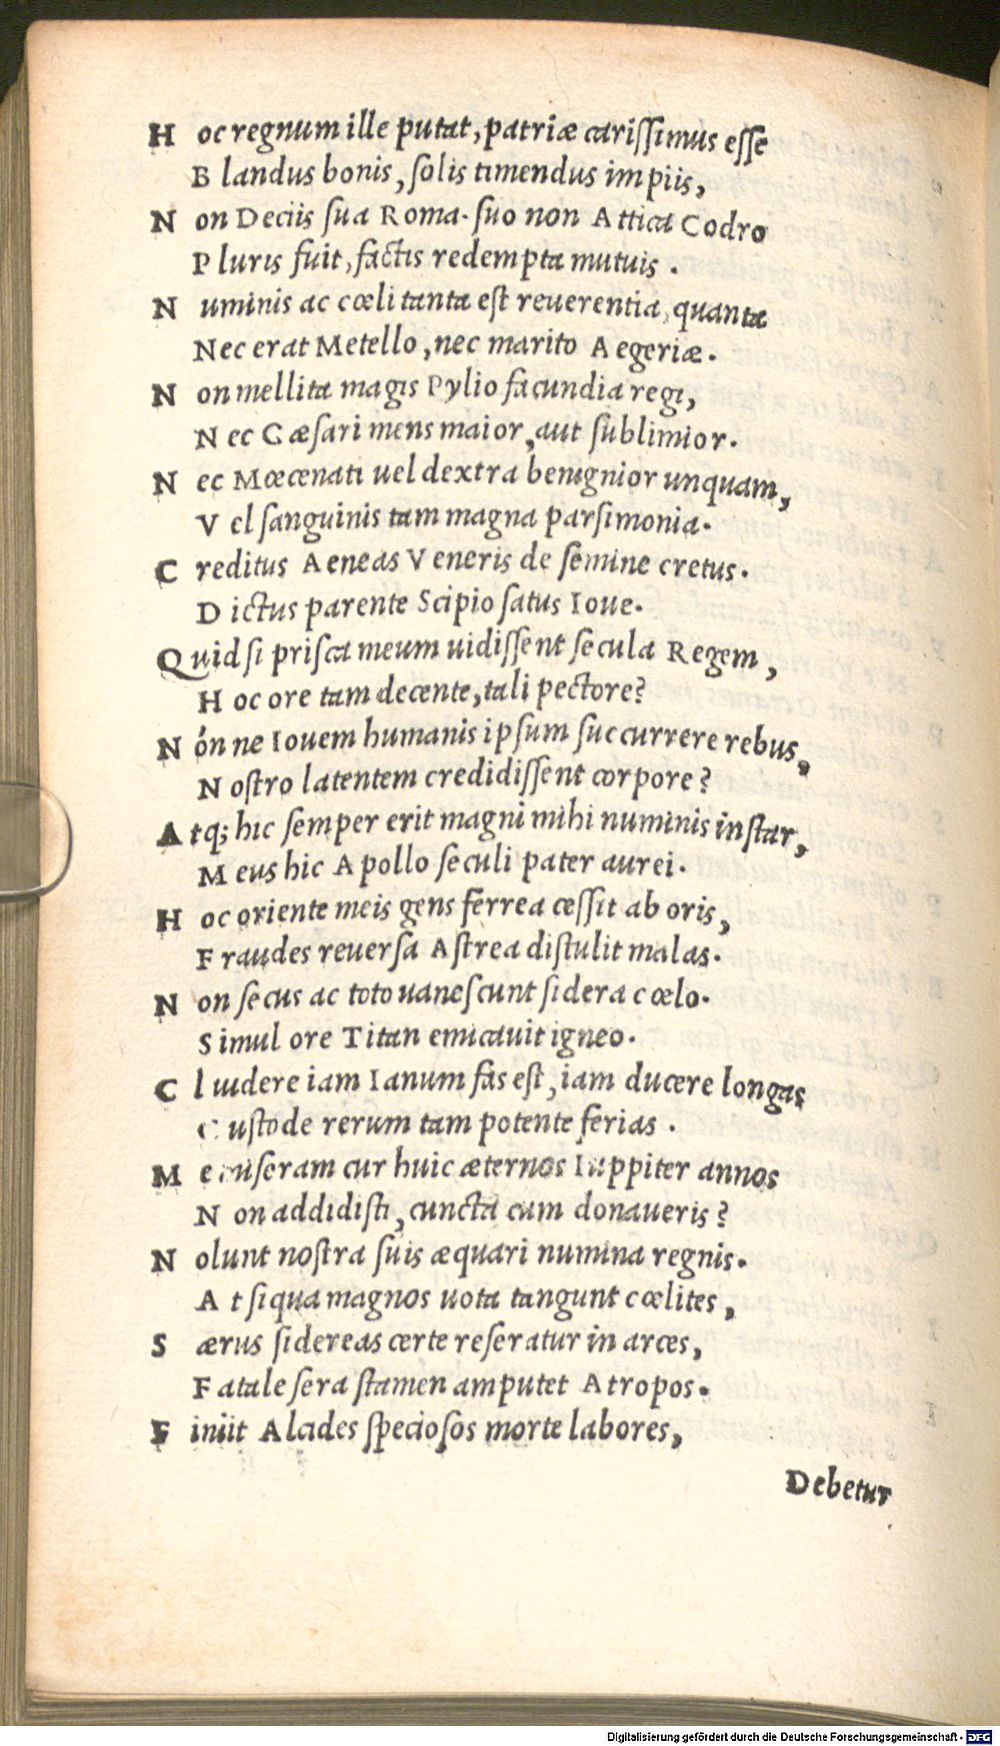 Hoc regnum ille putat, patriæ carissimus esse
Blandus bonis, solis timendus impiis,
Non Deciis sua Roma. suo non Attica Codro
Pluris fuit, factis redempta mutuis.
Numinis ac cœli tanta est reuerentia, quanta
Nec erat Metello, nec marito Aegeriæ.
Non mellita magis Pylio facundia regi,
Nec Cæsari mens maior, aut sublimior.
Nec Mœcenati uel dextra benignior unquam,
Vel sanguinis tam magna parsimonia.
Creditus Aeneas Veneris de semine cretus.
Dictus parente Scipio satus Ioue.
Quid si prisca meum uidissent secula Regem,
Hoc ore tam decente, tali pectore?
Nónne Iouem humanis ipsum succurrere rebus,
Nostro latentem credidissent corpore?
Atq; hic semper erit magni mihi numinis instar,
Meus hic Apollo seculi pater aurei.
Hoc oriente meis gens ferrea cessit ab oris,
Fraudes reuersa Astrea distulit malas.
Non secus ac toto uanescunt sidera cœlo.
Simul ore Titan emicauit igneo.
Cludere iam Ianum fas est, iam ducere longas
Custode rerum tam potente ferias.
Me miseram cur huic æternos Iuppiter annos
Non addidisti, cuncta cum donaueris?
Nolunt nostra suis æquari numina regnis.
At siqua magnos uota tangunt cœlites,
Særus sidereas certe reseratur in arces,
Fatale sera stamen amputet Atropos.
Finiit Alcides speciosos morte labores,
Debetur
Digitalisierung gefördert durch die Deutsche Forschungsgemeinschaft - DFG